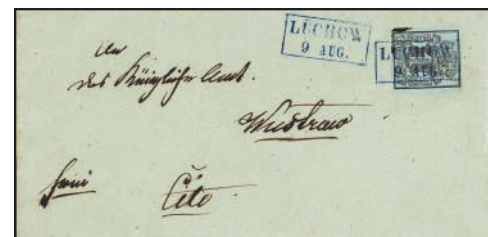 LÜCHOW
9 AUG.
LÜCHOW
9 AUG.
An
das Königliche Amt.
Wustrow
frei
Cito